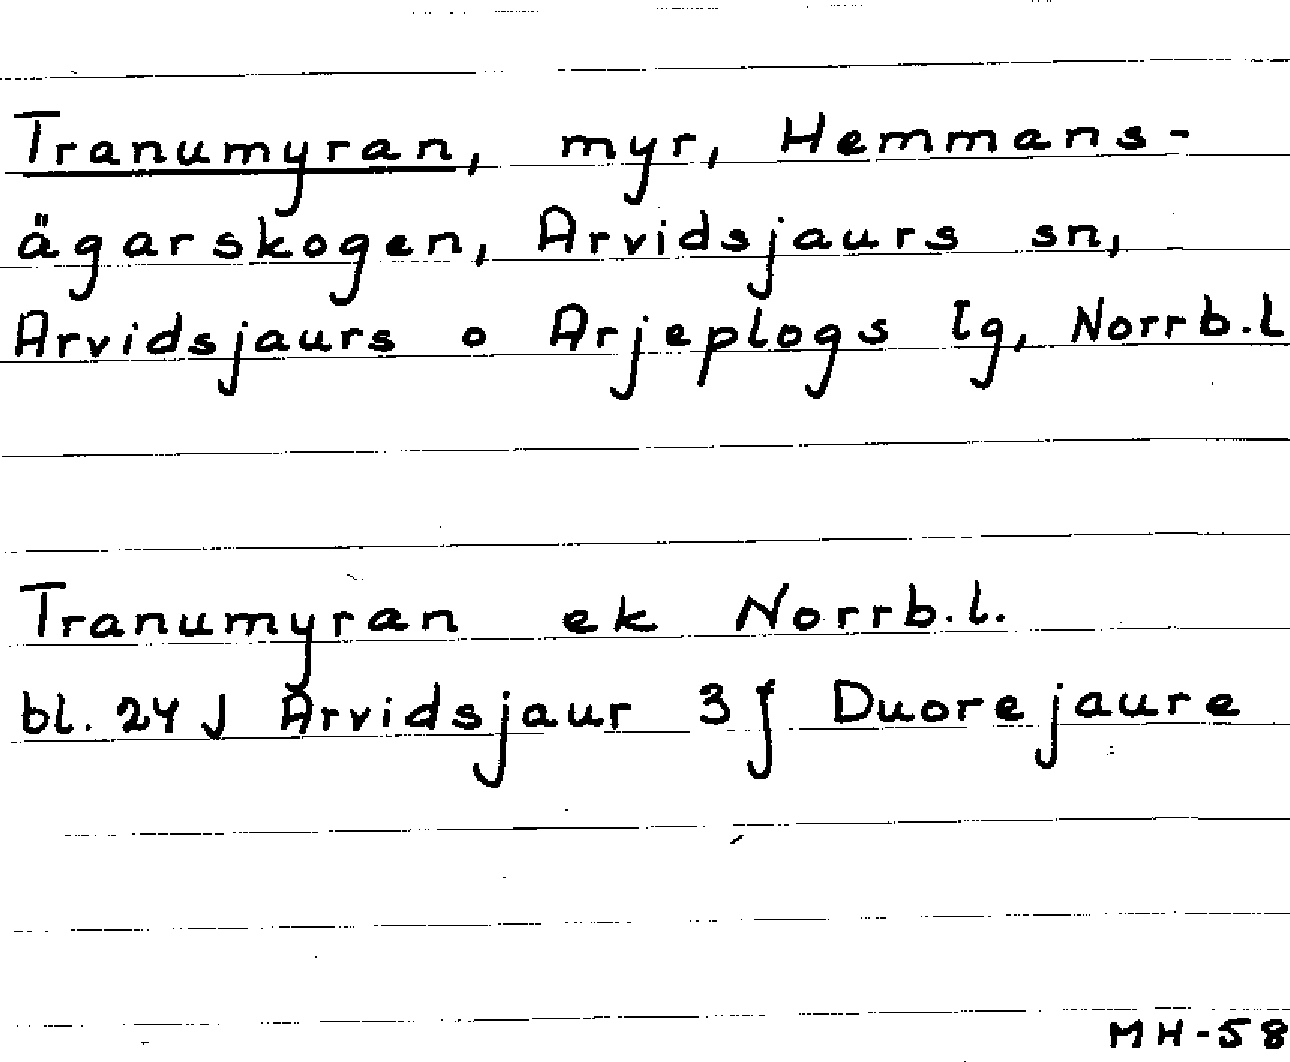 Tranumyran, myr, Hemmans-
ägarskogen, Arvidsjaurs sn,
Arvidsjaurs o Arjeplogs lg, Norrb.l
Tranumyran ek Norrb.l.
bl. 24 J Arvidsjaur 3 f Duorejaure
MH-58